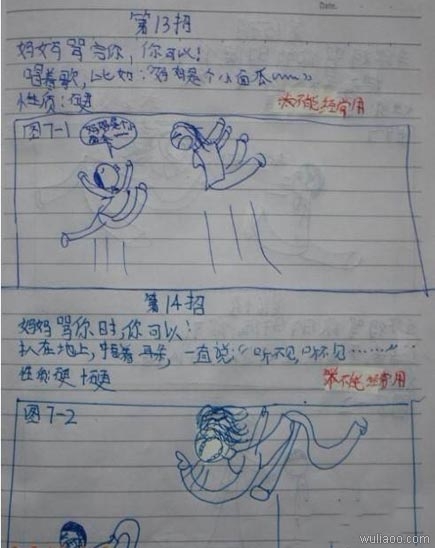 Date.
第13招
妈妈骂你，你可以！
唱着歌，比如：妈妈是个小面瓜
性质：硬
本不能经常用
图7-1
妈妈是个小面瓜
第14招
妈妈骂你时，你可以！
趴在地上，捂着耳朵，一直说：“听不见，听不见………”
性质：硬+硬
本不能经常用
图7-2
wuliaoo.com